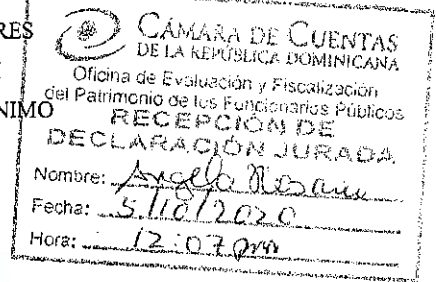 RES
NIMO
CÁMARA DE CUENTAS
DE LA REPÚBLICA DOMINICANA
Oficina de Evaluación y Fiscalización
del Patrimonio de los Funcionarios Públicos
RECEPCIÓN DE
DECLARACIÓN JURADA
Nombre: Angela
Fecha: 5/10/2020
Hora: 12:07 pm